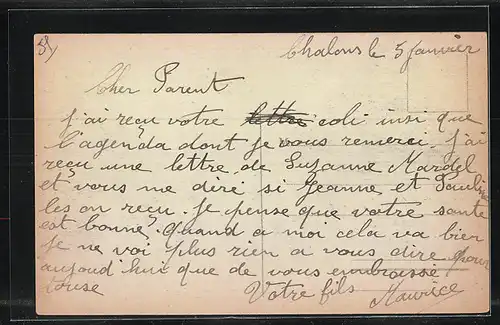 Chalons le 5 Janvier
Cher Parent
j'ai reçu votre lettre coli insi que
l'agenda dont je vous remerci. j'ai
reçu une lettre de Suzanne Mardel
et vous me diré si Jeanne et Pauline
les on reçu. je pense que votre sante
est bonne. quand a moi cela va bier
je ne voi plus rien a vous dire pour
aujoud hui que de vous embrasse
touse
Votre fils Maurice